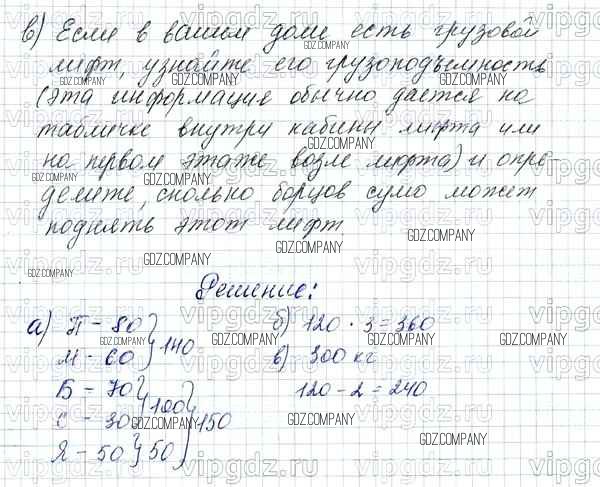 в) Если в вашем доме есть грузовой
лифт, узнайте его грузоподъемность
(эта информация обычно дается на
табличке внутри кабины лифта или
на первом этаже возле лифта) и опре-
делите, сколько борцов сумо может
поднять этот лифт
Решение:
а) П - 80 } 140
М - 60
Б - 70 } 100 } 150
С - 30
Я - 50 } 50
б) 120 · 3 = 360
в) 300 кг
120 - 2 = 240
vipgdz.ru
GDZ.COMPANY